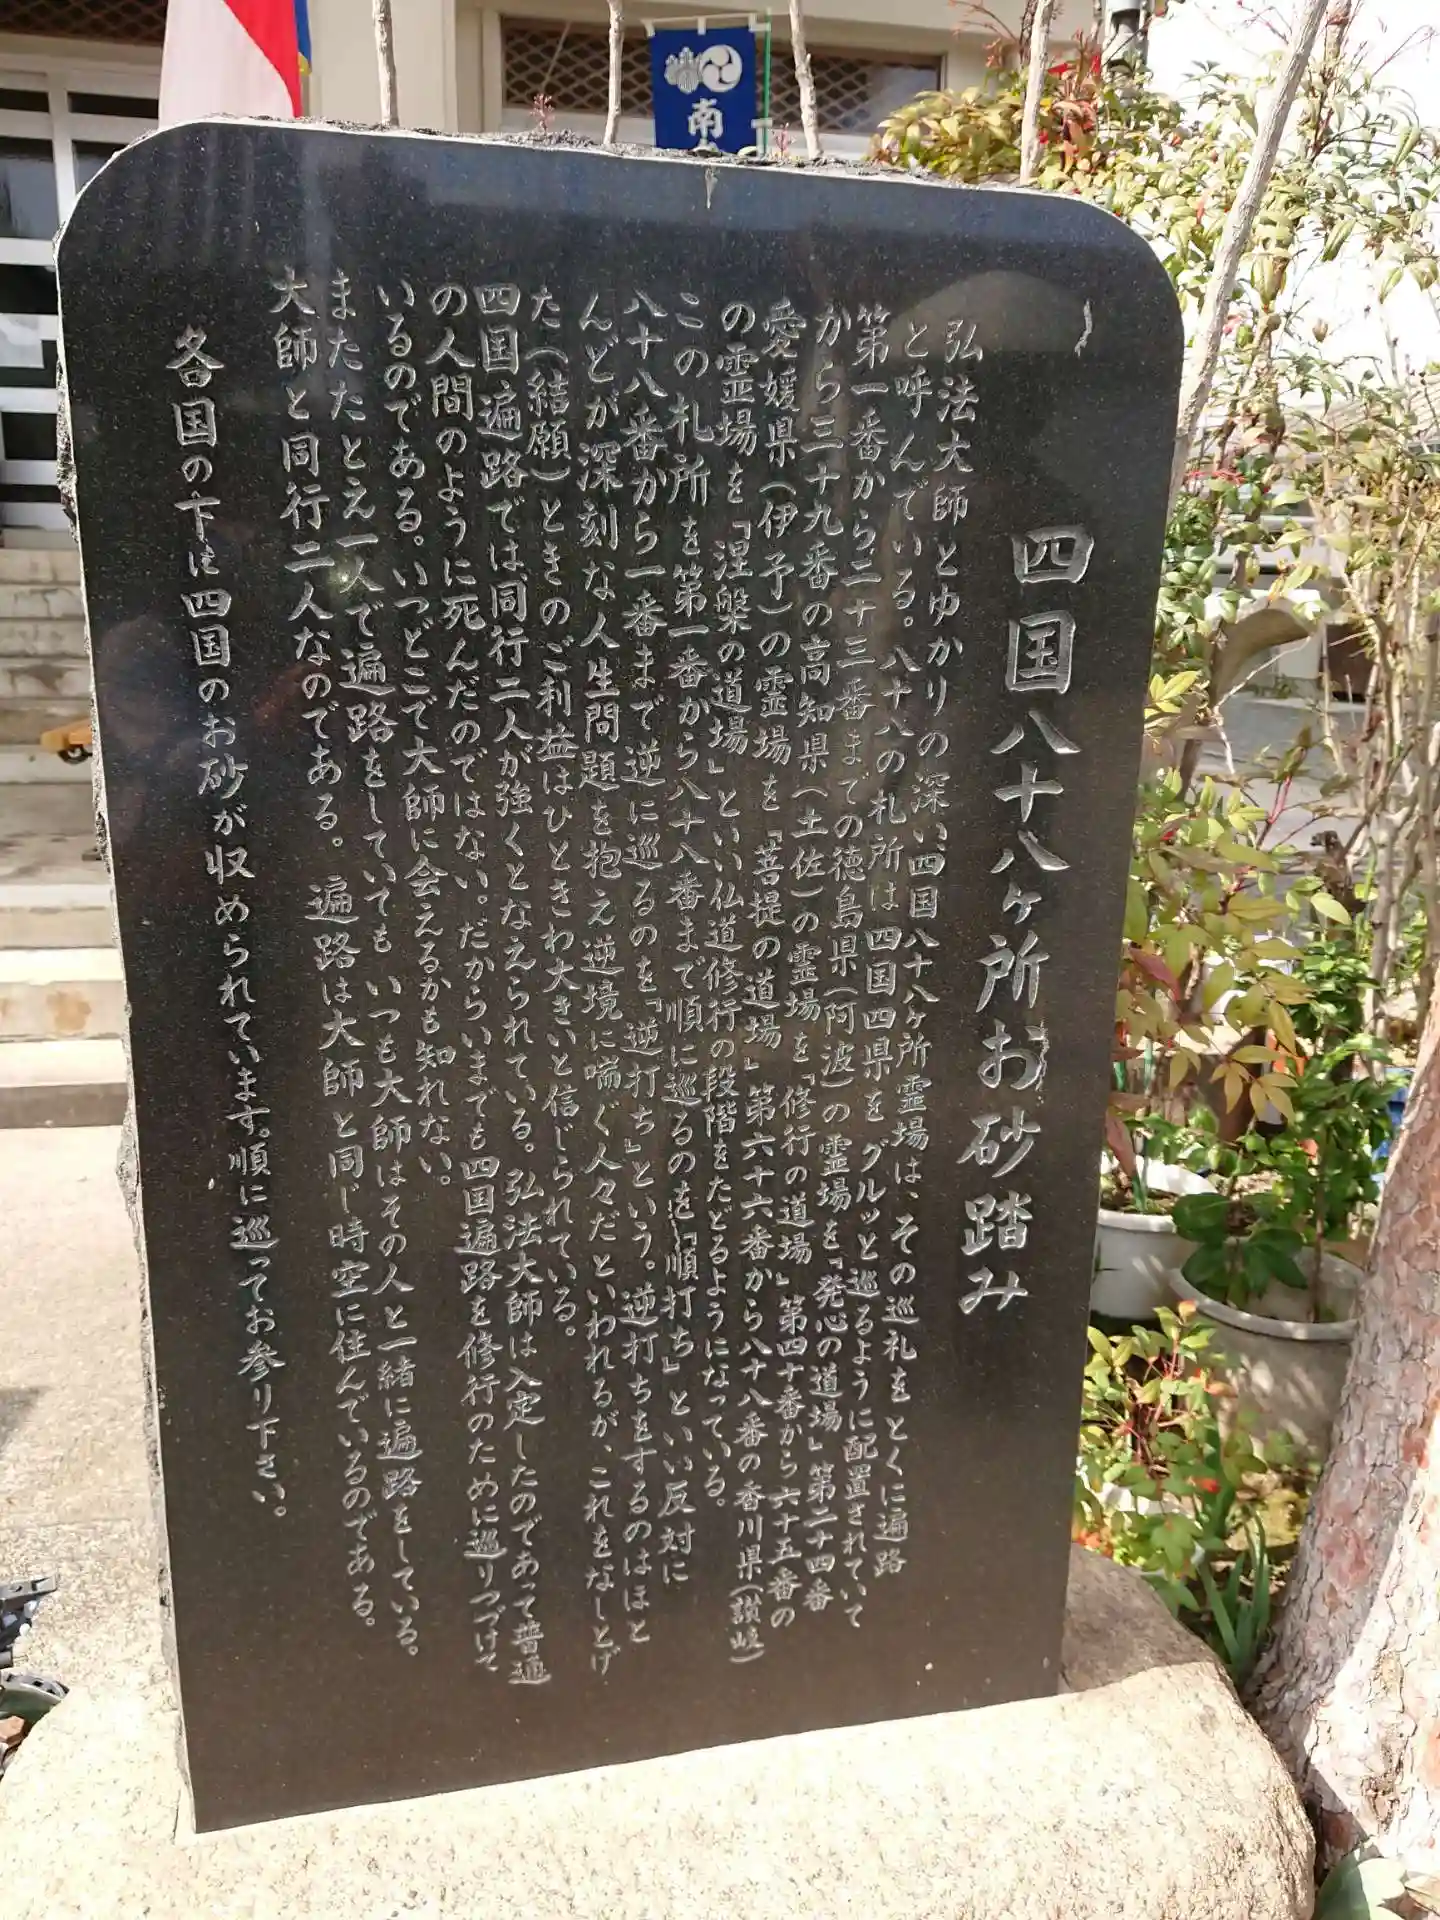 南
四国八十八ヶ所お砂踏み
弘法大師とゆかりの深い四国八十八ヶ所霊場は、その巡礼をとくに遍路
と呼んでいる。八十八の札所は四国四県をグルッと巡るように配置されていて
第一番から二十三番までの徳島県(阿波)の霊場を「発心の道場」第二十四番
から三十九番の高知県(土佐)の霊場を「修行の道場」第四十番から六十五番の
愛媛県(伊予)の霊場を「菩提の道場」第六十六番から八十八番の香川県(讃岐)
の霊場を「涅槃の道場」といい仏道修行の段階をたどるようになっている。
この札所を第一番から八十八番まで順に巡るのを「順打ち」といい反対に
八十八番から一番まで逆に巡るのを「逆打ち」という。逆打ちをするのはほと
んどが深刻な人生問題を抱え逆境に喘ぐ人々だといわれるが、これをなしとげ
た(結願)ときのご利益はひときわ大きいと信じられている。
四国遍路では同行二人が強くとなえられている。弘法大師は入定したのであって普通
の人間のように死んだのではない。だからいまでも四国遍路を修行のために巡りつづけて
いるのである。いつどこで大師に会えるかも知れない。
またたとえ一人で遍路をしていても いつも大師はその人と一緒に遍路をしている。
大師と同行二人なのである。 遍路は大師と同じ時空に住んでいるのである。
各国の下に四国のお砂が収められています。順に巡ってお参り下さい。